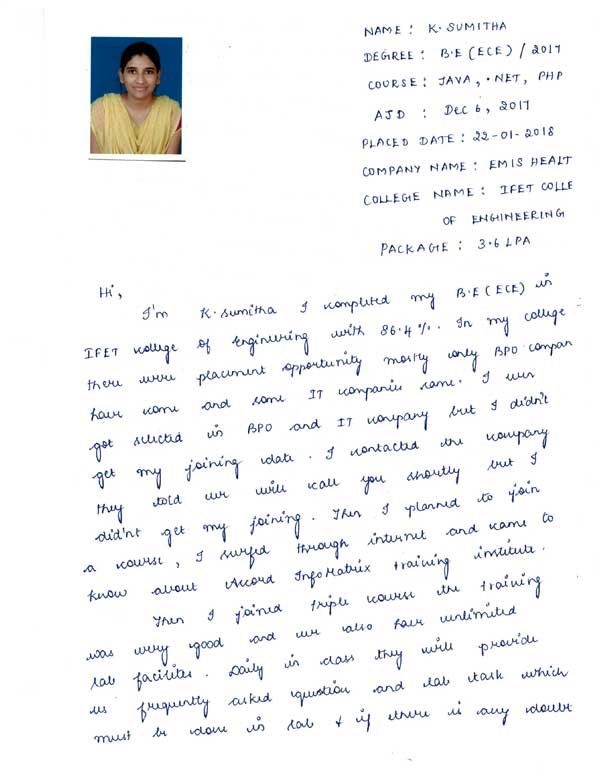 NAME : K. SUMITHA
DEGREE : B.E (ECE) / 2017
COURSE : JAVA, .NET, PHP
AJD : Dec 6, 2017
PLACED DATE : 22-01-2018
COMPANY NAME : EMIS HEALT
COLLEGE NAME : IFET COLLE
OF ENGINEERING
PACKAGE : 3.6 LPA
Hi,
I'm K. Sumitha I completed my B.E (ECE) in
IFET college of Engineering with 86.4%. In my college
there were placement opportunity mostly only BPO compan
have come and some IT companies came. I was
got selected in BPO and IT company but I didn't
get my joining date. I contacted the company
they told we will call you shortly but I
didn't get my joining. Then I planned to join
a course, I surfed through internet and came to
know about Accord Info Matrix training institute.
Then I joined triple course the training
was very good and we also have unlimited
lab facilites. Daily in class they will provide
us frequently asked question and lab task which
must be done in lab & if there is any doubt